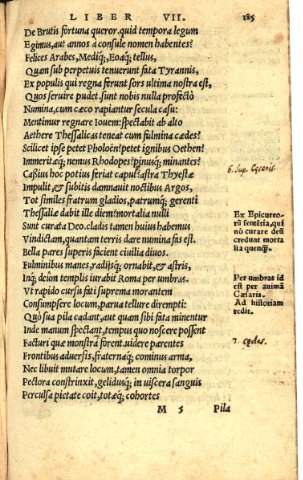 LIBER VII. 185
De Brutis fortuna queror. quid tempora legum
Egimus, aut annos à consule nomen habentes?
Felices Arabes, Mediq;, Eoaq; tellus,
Quam sub perpetuis tenuerunt fata Tyrannis.
Ex populis qui regna ferunt sors ultima nostra est,
Quos seruire pudet. sunt nobis nulla profectò
Numina, cum cæco rapiantur secula casu:
Mentimur regnare Iouem: spectabit ab alto
Aethere Thessalicas teneat cum fulmina cædes?
Scilicet ipse petet Pholoën? petet ignibus Oethen?
Immeritæq; nemus Rhodopes? pinusq; minantes?
Casius hoc potius feriat caput? astra Thyestæ
Impulit, & subitis damnauit noctibus Argos,
Tot similes fratrum gladios, patrumq; gerenti
Thessaliæ dabit ille diem? mortalia nulli
Sunt curata Deo. clades tamen huius habemus
Vindictam, quantam terris dare numina fas est.
Bella pares superis facient ciuilia diuos.
Fulminibus manes, radijsq; ornabit, & astris,
Inq; deûm templis iurabit Roma per umbras.
Vt rapido cursu fati suprema morantem
Consumpsere locum, parua tellure dirempti:
Quò sua pila cadant, aut quam sibi fata minentur
Inde manum spectant. tempus quo noscere possent
Facturi quæ monstra forent. uidere parentes
Frontibus aduersis, fraternaq; cominus arma,
Nec libuit mutare locum, tamen omnia torpor
Pectora constrinxit, gelidusq; in uiscera sanguis
Perculsa pietate coit, totaq; cohortes
M 5 Pila
6. Sup.
Ex Epicureo-
rū sentētia, qui
nō curare deos
credunt morta
lia quenq̃.
Per umbras id
est per animā
Cæsaris.
Ad historiam
redit.
7.